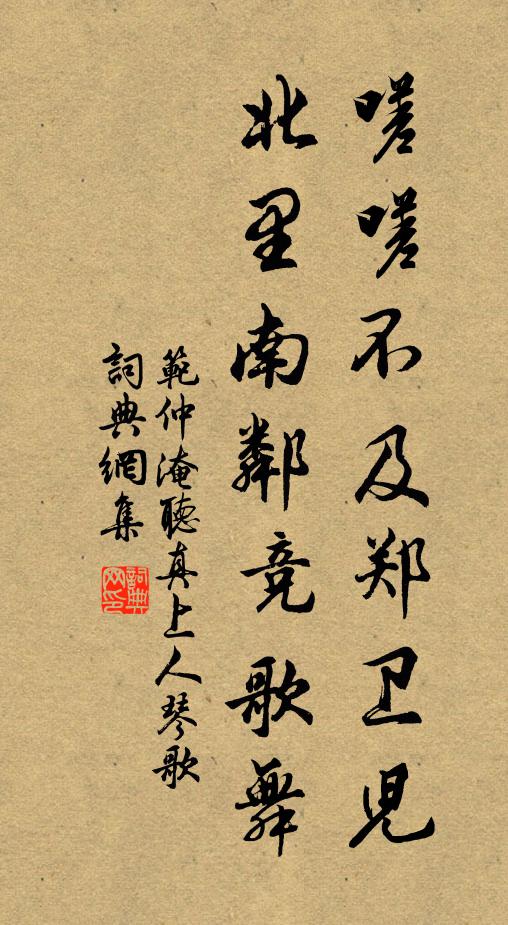 嗟嗟不及郑卫児
北里南鄰竞歌舞
範仲淹聽真上人琴歌
詞典網集
詞典网印